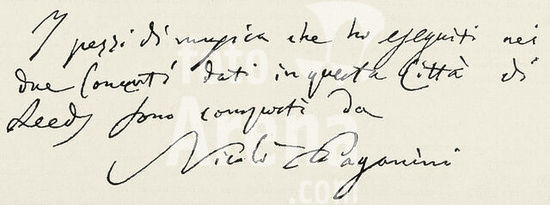 I pezzi di musica che ho eseguiti nei
due Concerti dati in questa Città di
Leeds sono composti da
Nicolò Paganini